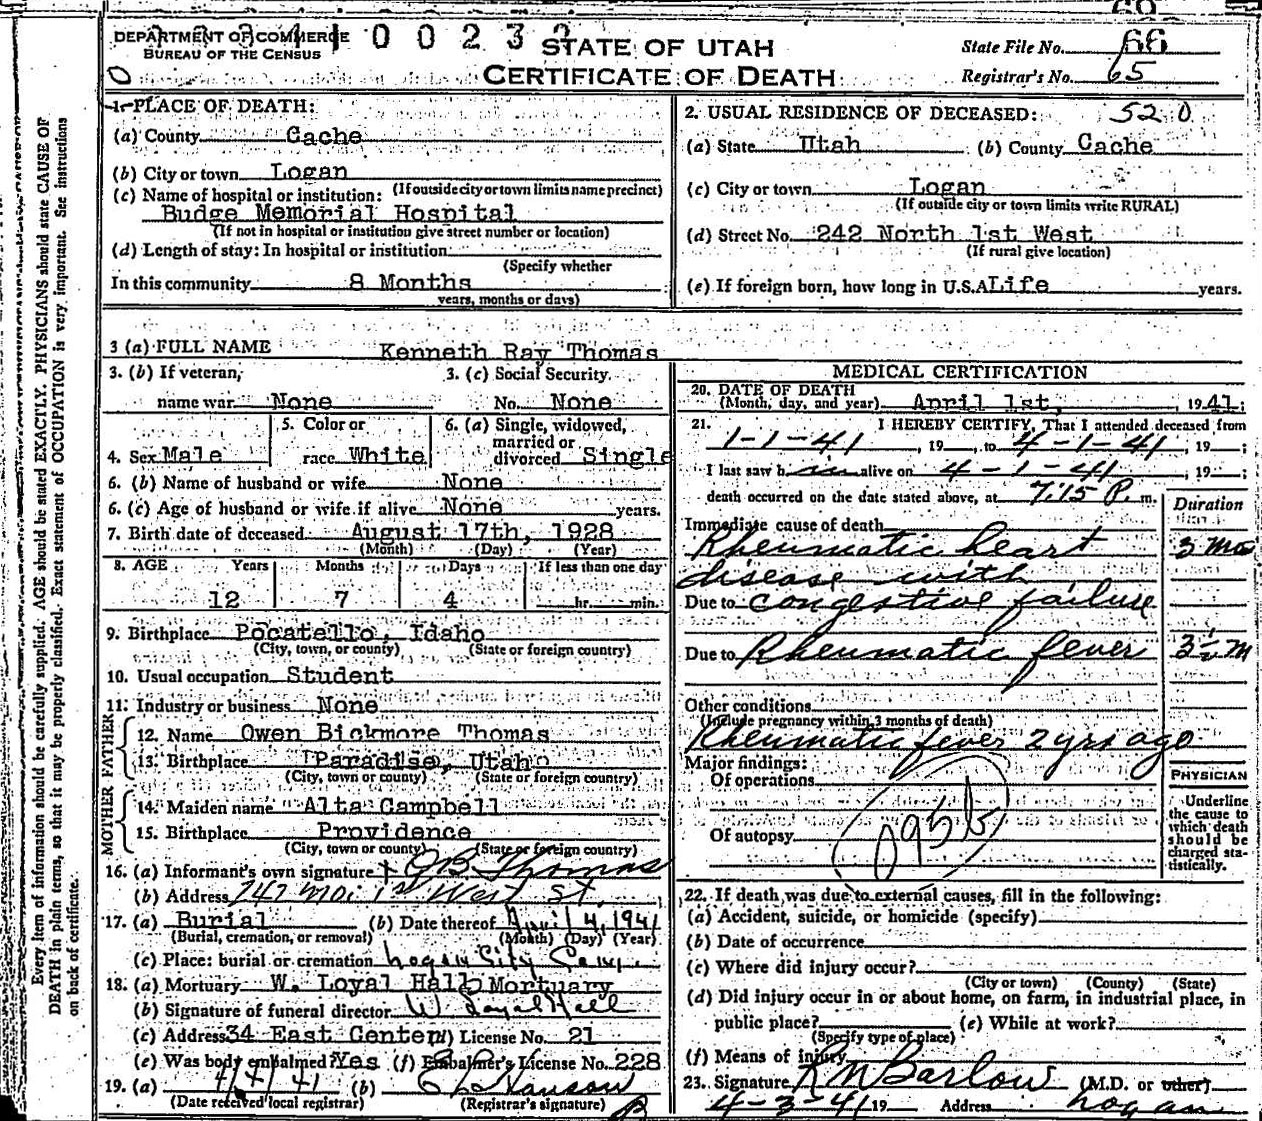 DEPARTMENT OF COMMERCE
BUREAU OF THE CENSUS
STATE OF UTAH
CERTIFICATE OF DEATH
State File No. 66
Registrar's No. 65
Every item of information should be carefully supplied. AGE should be stated EXACTLY. PHYSICIANS should state CAUSE OF
DEATH in plain terms, so that it may be properly classified. Exact statement of OCCUPATION is very important. See instructions
on back of certificate.
1. PLACE OF DEATH:
(a) County Cache
(b) City or town Logan
(If outside city or town limits name precinct)
(c) Name of hospital or institution:
Budge Memorial Hospital
(If not in hospital or institution give street number or location)
(d) Length of stay: In hospital or institution
(Specify whether
In this community 8 Months
years, months or days)
2. USUAL RESIDENCE OF DECEASED: 520
(a) State Utah (b) County Cache
(c) City or town Logan
(If outside city or town limits write RURAL)
(d) Street No. 242 North 1st West
(If rural give location)
(e) If foreign born, how long in U.S.A. Life years.
3 (a) FULL NAME Kenneth Ray Thomas
3. (b) If veteran, 3. (c) Social Security
name war None No. None
4. Sex Male
5. Color or
race White
6. (a) Single, widowed,
married or
divorced Single
6. (b) Name of husband or wife None
6. (c) Age of husband or wife if alive None years.
7. Birth date of deceased August 17th, 1928
(Month) (Day) (Year)
8. AGE Years Months Days If less than one day
12 7 4 hr. min.
9. Birthplace Pocatello, Idaho
(City, town, or county) (State or foreign country)
10. Usual occupation Student
11. Industry or business None
FATHER
12. Name Owen Bickmore Thomas
13. Birthplace Paradise, Utah
(City, town or county) (State or foreign country)
MOTHER
14. Maiden name Alta Campbell
15. Birthplace Providence
(City, town or county) (State or foreign country)
16. (a) Informant's own signature O B Thomas
(b) Address 242 No. 1st West St.
17. (a) Burial (b) Date thereof April 4, 1941
(Burial, cremation, or removal) (Month) (Day) (Year)
(c) Place: burial or cremation Logan City Cem.
18. (a) Mortuary W. Loyal Hall Mortuary
(b) Signature of funeral director W Loyal Hall
(c) Address 34 East Center (d) License No. 21
(e) Was body embalmed? Yes (f) Embalmer's License No. 228
19. (a) 4/4/41 (b)
(Date received local registrar) (Registrar's signature)
MEDICAL CERTIFICATION
20. DATE OF DEATH
(Month, day, and year) April 1st, 1941;
21. I HEREBY CERTIFY, That I attended deceased from
1-1-41, 19 , to 4-1-41, 19 ;
I last saw him alive on 4-1-41, 19 ;
death occurred on the date stated above, at 7:15 P. m.
Duration
Immediate cause of death
Rheumatic heart 3 mos
disease with
Due to congestive failure
Due to Rheumatic fever 3½ m
Other conditions
(Include pregnancy within 3 months of death)
Rheumatic fever 2 yrs ago
Major findings:
Of operations
Of autopsy
095b
PHYSICIAN
Underline
the cause to
which death
should be
charged sta-
tistically.
22. If death was due to external causes, fill in the following:
(a) Accident, suicide, or homicide (specify)
(b) Date of occurrence
(c) Where did injury occur?
(City or town) (County) (State)
(d) Did injury occur in or about home, on farm, in industrial place, in
public place? (e) While at work?
(Specify type of place)
(f) Means of injury
23. Signature R N Barlow (M.D. or other)
4-3-41 19 Address Logan